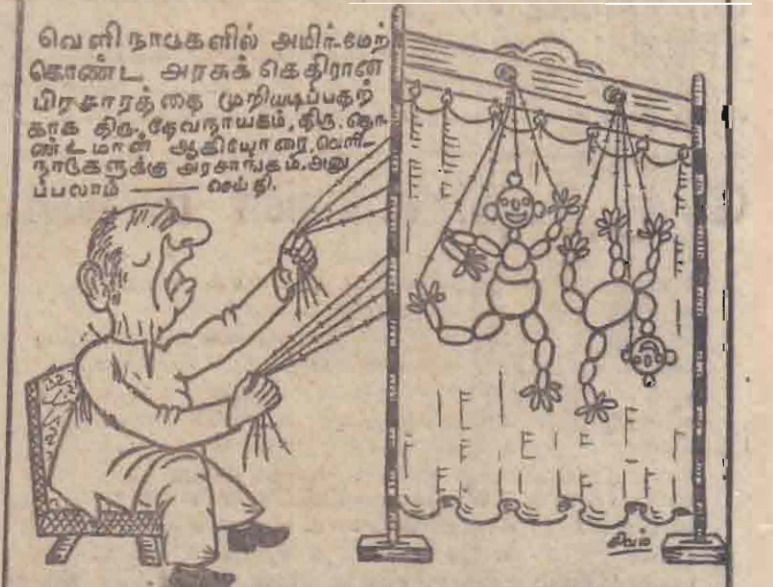 வெளிநாடுகளில் அமிர்-மேற்
கொண்ட அரசுக் கெதிரான
பிரசாரத்தை முறியடிப்பதற்
காக திரு. தேவநாயகம், திரு. தொ-
ண்டமான் ஆகியோரை, வெளி-
நாடுகளுக்கு அரசாங்கம். அனு
ப்பலாம் —— செய்தி.
சிவம்